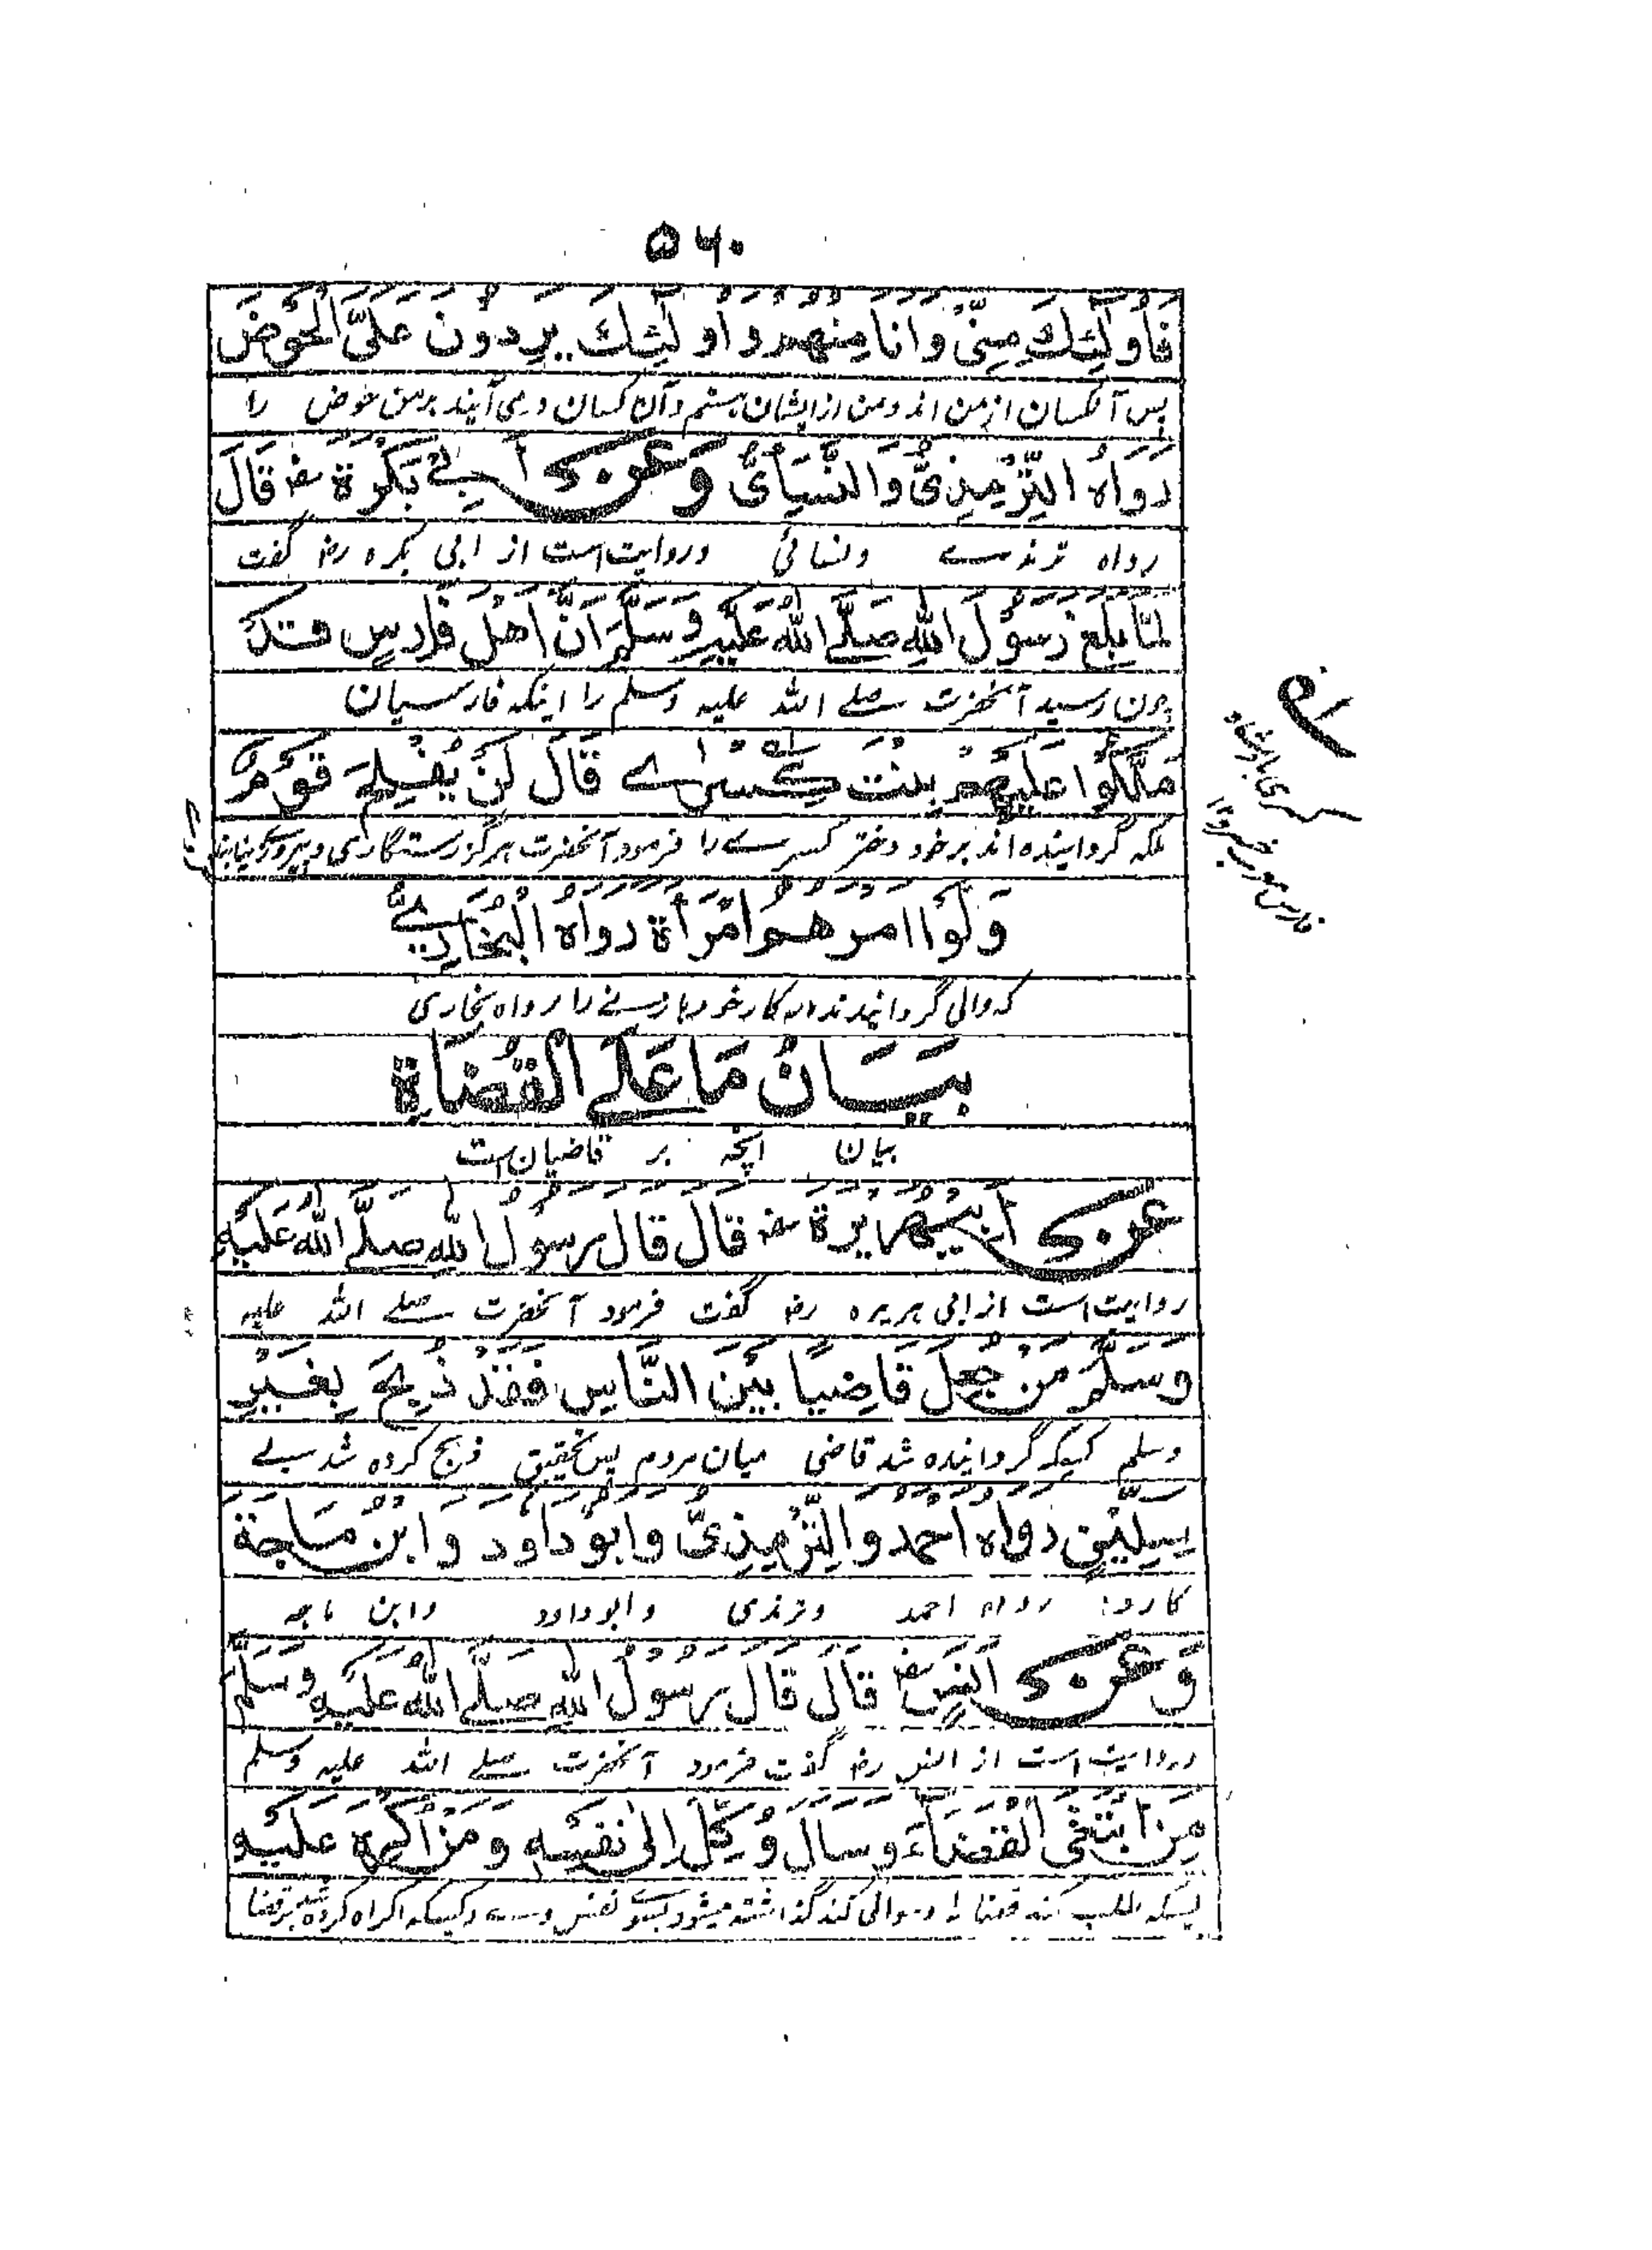 ۵۶۰
فَأُولَٰئِكَ مِنِّي وَأَنَا مِنْهُمْ وَأُولَٰئِكَ يَرِدُونَ عَلَيَّ الْحَوْضَ
پس آنکسان از من اند و من از ایشان هستم و آن کسان در می آیند بر من حوض را
رَوَاهُ التِّرْمِذِيُّ وَالنَّسَائِيُّ وَعَنْ أَبِي بَكْرَةَ رض قَالَ
رواه ترمذے ونسائی وروایت است از ابی بکره رض گفت
لَمَّا بَلَغَ رَسُولَ اللهِ صَلَّى اللهُ عَلَيْهِ وَسَلَّمَ أَنَّ أَهْلَ فَارِسٍ قَدْ
چون رسید آنحضرت صلے الله علیه وسلم را اینکه فارسیان
مَلَّكُوا عَلَيْهِمْ بِنْتَ كِسْرَى قَالَ لَنْ يُفْلِحَ قَوْمٌ
ملکه گردانیده اند بر خود دختر کسرے را فرمود آنحضرت هرگز رستگاری و پیروزی نیابند
وَلَّوْا أَمْرَهُمُ امْرَأَةً رَوَاهُ الْبُخَارِيُّ
که والی گردانیدند کار خود را زنے را رواه بخاری
بَيَانُ مَا عَلَى الْقُضَاةِ
بیان آنچه بر قاضیان است
عَنْ أَبِي هُرَيْرَةَ رض قَالَ قَالَ رَسُولُ اللهِ صَلَّى اللهُ عَلَيْهِ
روایت است از ابی هریره رض گفت فرمود آنحضرت صلے الله علیه
وَسَلَّمَ مَنْ جُعِلَ قَاضِيًا بَيْنَ النَّاسِ فَقَدْ ذُبِحَ بِغَيْرِ
وسلم کسیکه گردانیده شد قاضی میان مردم پس تحقیق ذبح کرده شد بے
سِكِّينٍ رَوَاهُ أَحْمَدُ وَالتِّرْمِذِيُّ وَأَبُو دَاوُدَ وَابْنُ مَاجَةَ
کارد رواه احمد وترمذی وابوداود وابن ماجه
وَعَنْ أَنَسٍ رض قَالَ قَالَ رَسُولُ اللهِ صَلَّى اللهُ عَلَيْهِ وَسَلَّمَ
وروایت است از انس رض گفت فرمود آنحضرت صلے الله علیه وسلم
مَنِ ابْتَغَى الْقَضَاءَ وَسَأَلَ وُكِّلَ إِلَى نَفْسِهِ وَمَنْ أُكْرِهَ عَلَيْهِ
کسیکه طلب کند قضا را وسوالی کند گذاشته میشود بسوے نفس وے وکسیکه اکراه کرده شد بر قضا